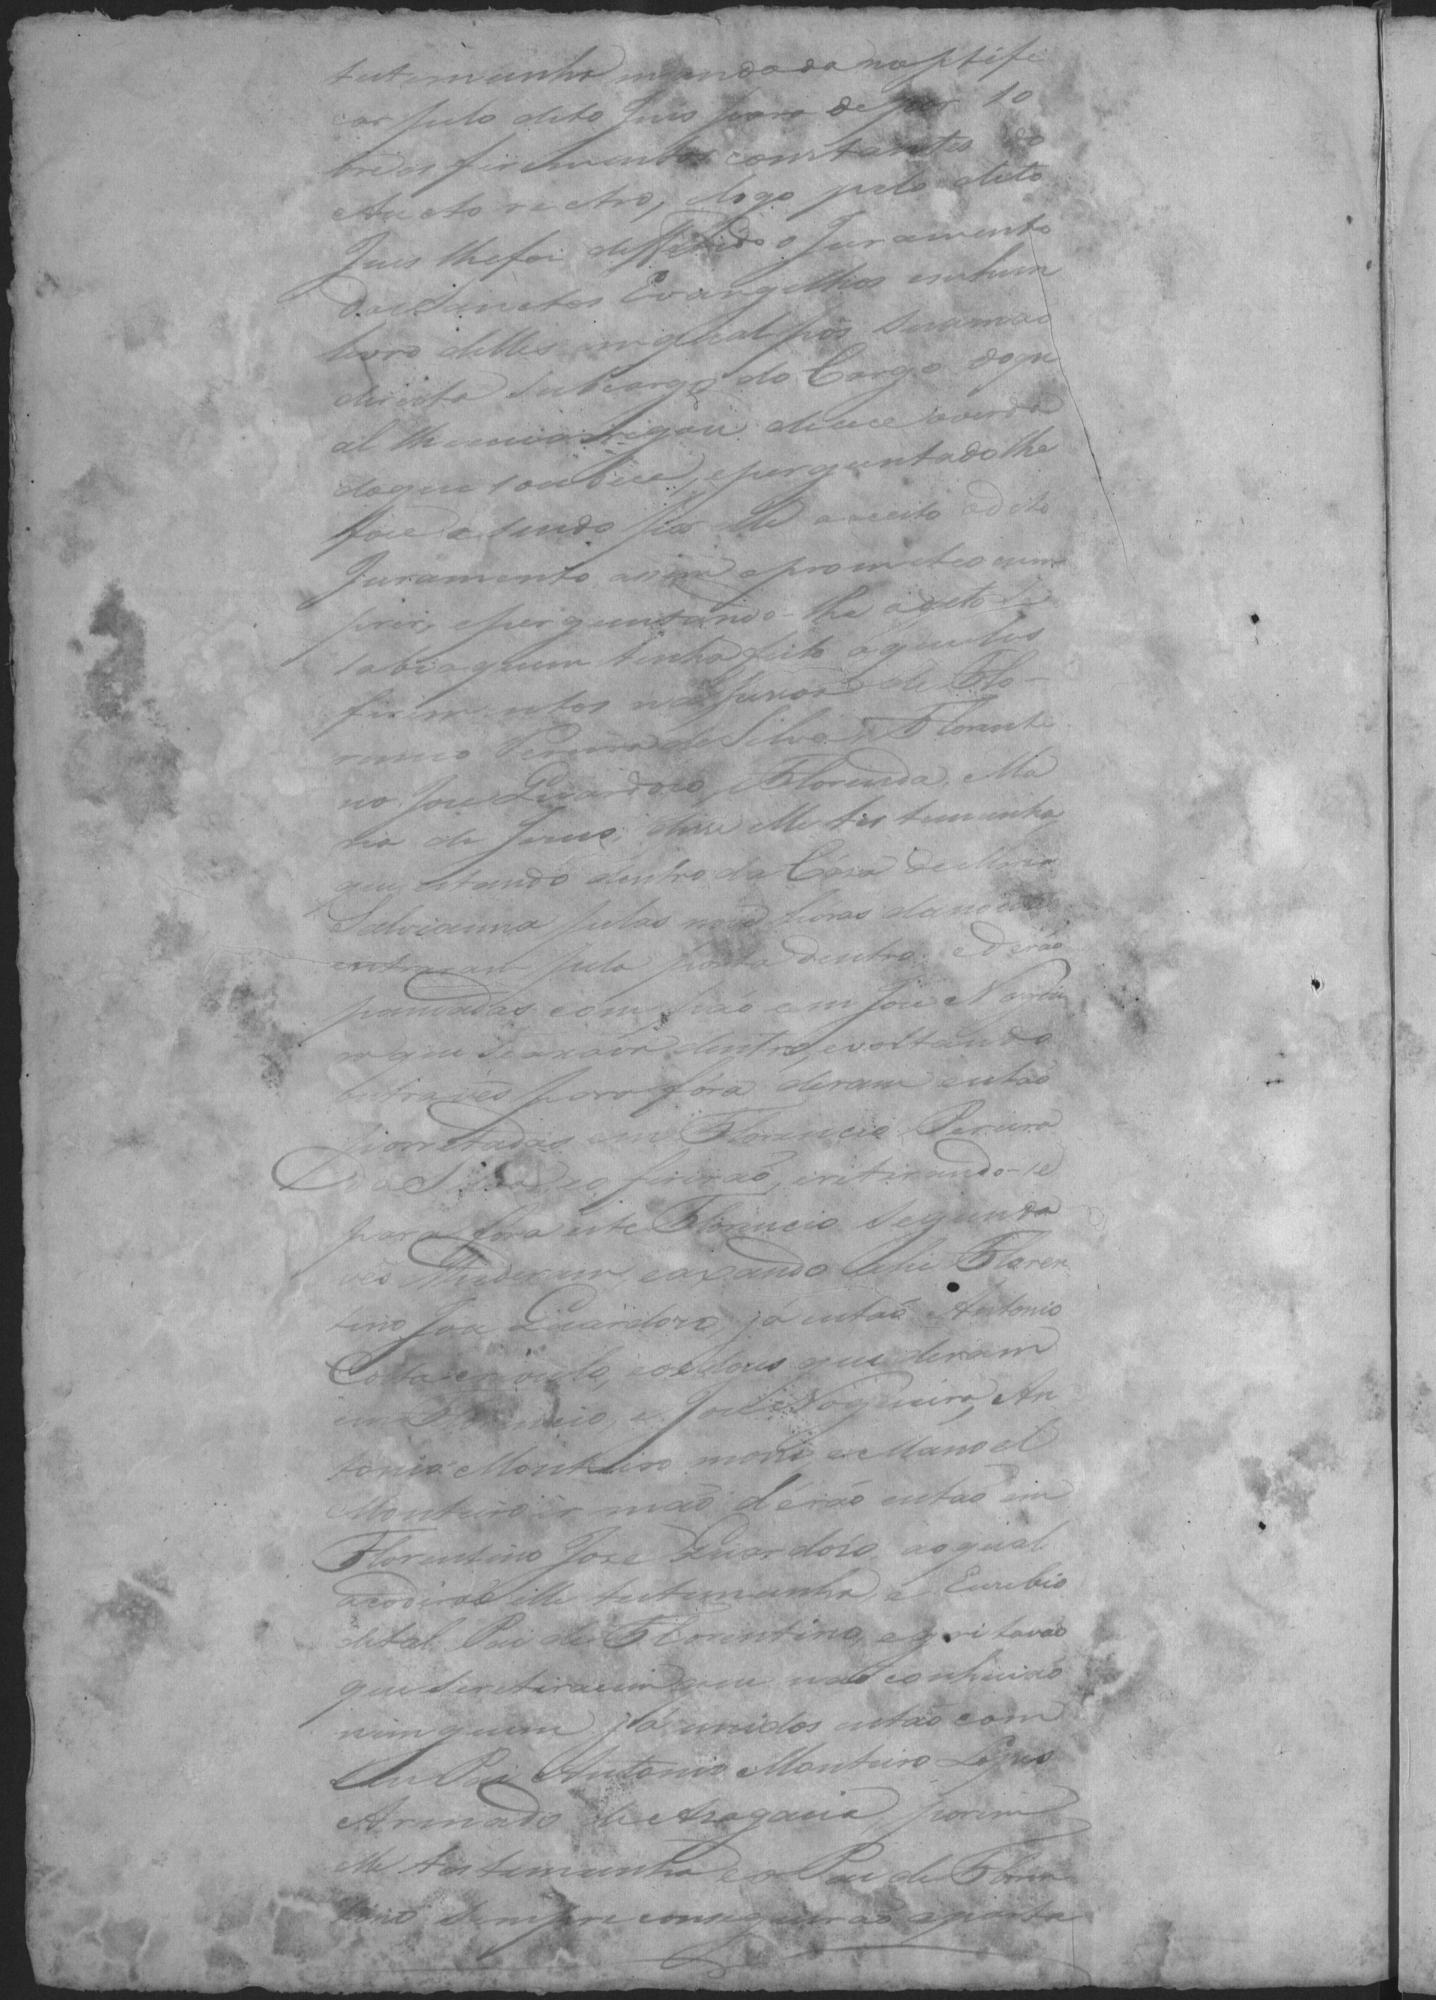 testemunha mandada noptifi
car pelo dito Juis para depor so
bre os firimentos constantes do
Aucto rectro, logo pelo dito
Juis lhe foi defferido o Juramento
dos Sanctos Evangelhos em hum
livro delles em qual pôs sua mão
direita sub cargo do Cargo do qu
al lhe encarregou dicece averda
de que soubece, e perguntado lhe
foce e sendo por elle aceito odito
Juramento assim o prometeo cum
prir, e perguntando-lhe o dito se
sabia quem tinha feito aquelles
firimentos nas pessoas de Flo-
rencio Pereira da Silva, Florenti
no Jose Guardozo, e Florinda Ma
ria de Jesus, disse elle testemunha
que estando dentro da Casa de Maria
Salvianna pelas nove horas da noite
entraram pela porta dentro, e derão
pancadas com páo em Jose Noguei
ra que se axava dentro, e voltando
outra ves para fóra deram então
porretadas em Florencio Pereira
Da Silva e o firirão, eretirando-se
para fora este Florencio segunda
ves lhe deram, e axando ahi Floren
tino Jose Guardozo, já então Antonio
Costa crioulo, e os dous que deram
em Florencio, e Jose Nogueira, An
tonio Monteiro moço e Manoel
Monteiro irmão derão então em
Florentino Jose Guardozo ao qual
acodirão elle testemunha, e Euzebio
de tal Pai de Florentino, e gritavão
que se retiracem que não conhecião
ninguem já unidos então com
seu Pai Antonio Monteiro Lopes
Armado de Aragaia, porem
elle testemunha e o Pai de Floren
tino sempre conseguirão aparta